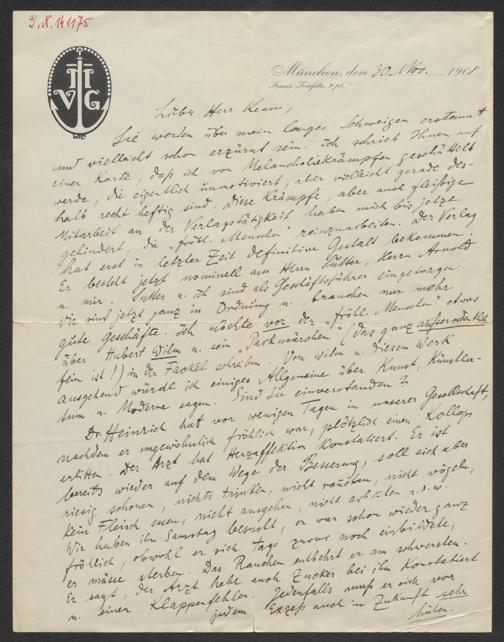 J. N. 141175
V G
München, den 30. Nov. 1908
Franz Josefstr. 9 pt.
Lieber Herr Kraus,
Sie werden über mein langes Schweigen erstaunt
und vielleicht schon erzürnt sein. Ich schrieb Ihnen auf
einer Karte, daß ich von Melancholiekrämpfen geschüttelt
werde, die eigentlich unmotiviert, aber vielleicht gerade des-
halb recht heftig sind. Diese Krämpfe, aber auch fleißige
Mitarbeit an der Verlagstätigkeit haben mich bis jetzt
gehindert, die „fröhl. Menschen" reinzuarbeiten. Der Verlag
hat erst in letzter Zeit definitive Gestalt bekommen.
Er besteht jetzt nominell aus Herrn Sutter, Herrn Arnold
u. mir. Sutter u. ich sind als Geschäftsführer eingetragen.
Wir sind jetzt ganz in Ordnung u. brauchen nur mehr
gute Geschäfte. Ich möchte vor der „fröhl. Menschen" etwas
über Hubert Wilm u. sein „Parkmärchen" (das ganz außerordentlich
fein ist!) in der Fackel schreiben. Von Wilm u. diesem Werk
ausgehend würde ich einiges Allgemeine über Kunst, Künstler-
tum u. Moderne sagen. Sind Sie einverstanden?
Dr. Heinrich hat vor wenigen Tagen in unserer Gesellschaft,
nachdem er ungewöhnlich fröhlich war, plötzlich einen Kollaps
erlitten. Der Arzt hat Herzaffektion konstatiert. Er ist
bereits wieder auf dem Wege der Besserung, soll sich aber
riesig schonen, nichts trinken, nicht rauchen, nicht vögeln,
kein Fleisch essen, nicht ausgehen, nicht arbeiten u.s.w.
Wir haben ihn Samstag besucht, er war schon wieder ganz
fröhlich, obwohl er sich Tags zuvor noch einbildete,
er müsse sterben. Das Rauchen entbehrt er am schwersten.
Er sagt, der Arzt habe auch Zucker bei ihm konstatiert
u. einen Klappenfehler. Jedenfalls muß er sich vor
jedem Exzeß auch in Zukunft sehr
hüten.